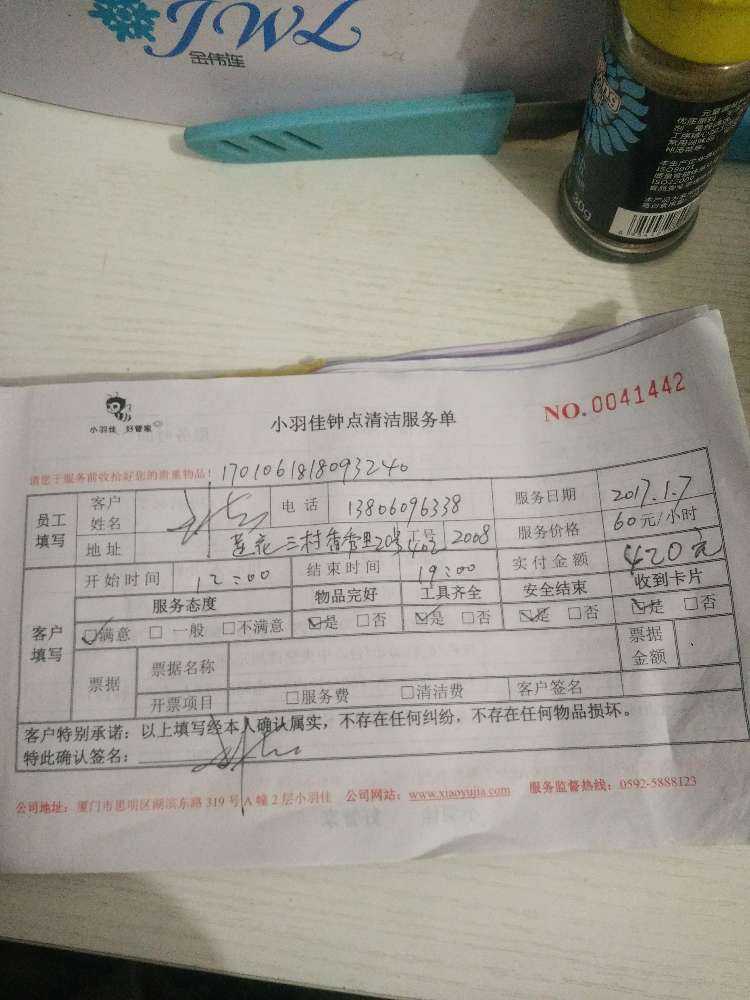 JWL
金伟连
ISO9001
50g
小羽佳 好管家
小羽佳钟点清洁服务单
NO. 0041442
请您于服务前收拾好您的贵重物品! 170106181809324​0
员工填写 客户姓名 电话 13806096338 服务日期 2017.1.7
地址 莲花三村香秀里20号403 工号 2008 服务价格 60元/小时
客户填写 开始时间 12:00 结束时间 19:00 实付金额 420元
服务态度 物品完好 工具齐全 安全结束 收到卡片
☑满意 □一般 □不满意 ☑是 □否 ☑是 □否 ☑是 □否 ☑是 □否
票据 票据名称 票据金额
开票项目 □服务费 □清洁费 客户签名
客户特别承诺：以上填写经本人确认属实，不存在任何纠纷，不存在任何物品损坏。
特此确认签名：
公司地址：厦门市思明区湖滨东路 319 号 A 幢 2 层小羽佳 公司网站：www.xiaoyujia.com 服务监督热线：0592-5888123